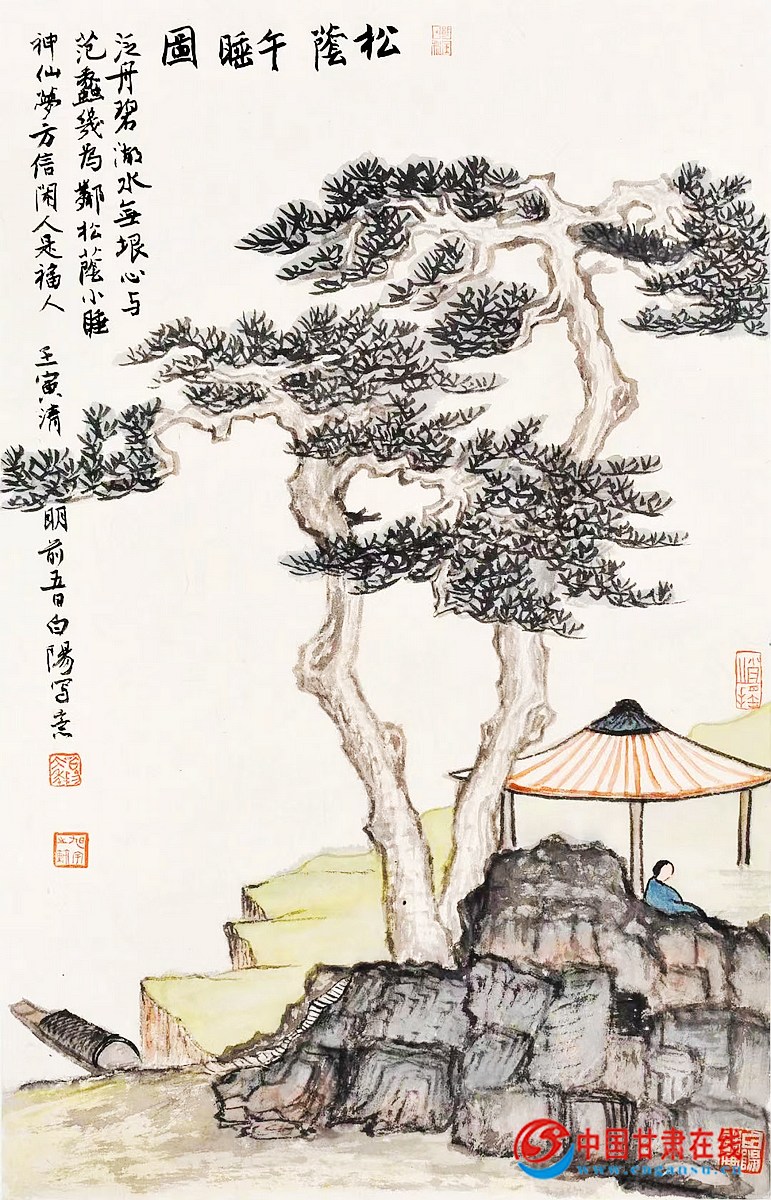 松蔭午睡圖
泛舟碧湖水無垠心与
范蠡幾為鄰松蔭小睡
神仙夢方信閑人是福人 壬寅清明前五日白陽写意
中国甘肃在线
www.cngansu.cn